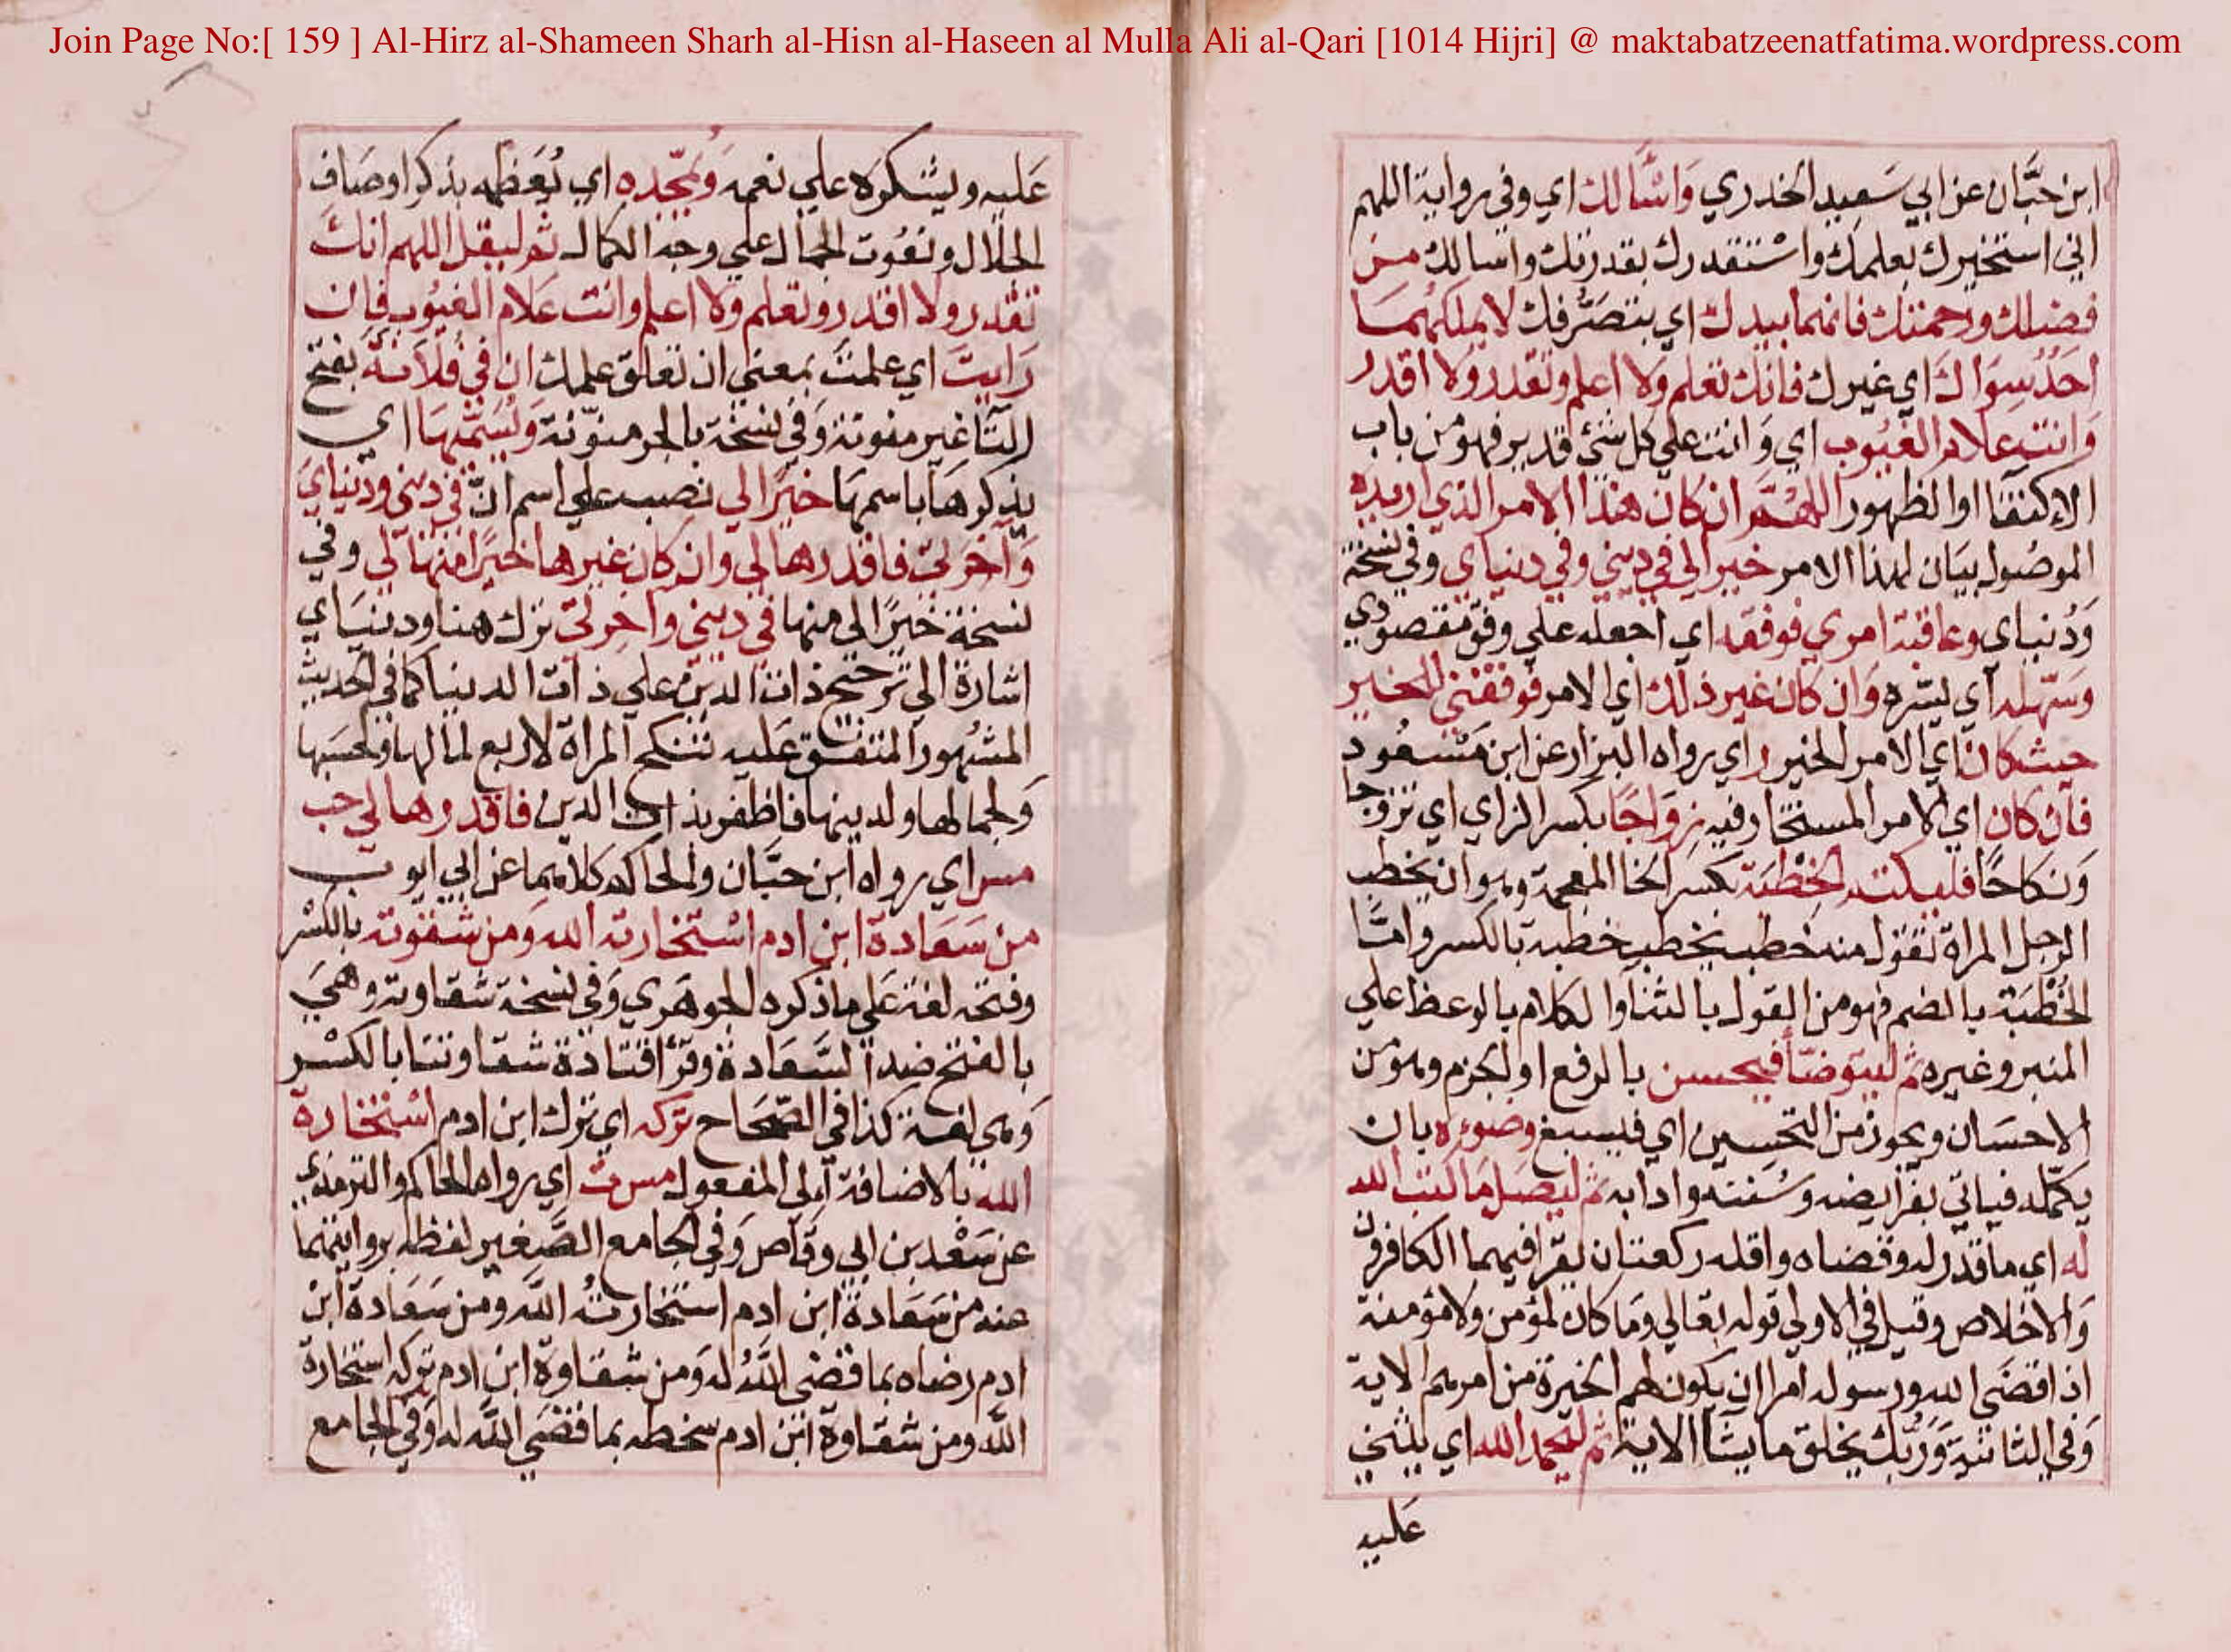 Join Page No:[ 159 ] Al-Hirz al-Shameen Sharh al-Hisn al-Haseen al Mulla Ali al-Qari [1014 Hijri] @ maktabatzeenatfatima.wordpress.com
ابن حبَّان عن ابي سَعيد الخدري وَاسْأَلك اي وفي رواية اللهم
اني استخيرك بعلمك واسْتقدرك بقدرتك واسالك من
فضلك ورحمتك فانهما بيدك اي بتصَرُّفك لا يملكهمَا
احَدٌ سِوَاك اي غيرك فانك تعلم ولا اعلم وتقدر ولا اقدر
وَانت علام الغيُوب اي وَانت علي كل شيْ قدير فهو من باب
الاكتفا او الظهور اللهُمَّ ان كان هذا الامر الذي اريده
الموصُول بيَان لهذا الامر خيرا لي في ديني وفي دنياي وفي نسخة
وَدُنياي وعاقبة امري فوفقه اي اجعله علي وفق مقصودي
وسَهّله اي يسّره وَان كان غير ذلك اي الامر فوفقني للخير
حيث كان اي الامر الخير ر اي رواه البزار عن ابن مَسْعُود
فان كان اي الامر المستخار فيه زِوَاجًا بكسر الزاي اي تزوجا
وَنكاحًا فليكتم الخِطْبَة بكسر الخا المعجمة وهو ان يخطب
الرجل المراة تقول منه خطب يخطب خطبة بالكسر وامَّا
الخُطْبَة بالضم فهو من القول بالثنا والكلام بالوعظ علي
المنبر وغيره ثم ليتوضّأ فيحسن بالرفع او الجزم وهو من
الاحسَان ويجوز من التحسين اي فيسبغ وضوءه بان
يكمّله فياتي بفرايضه وسُننه وادابه ثم ليصَل مَا كتب الله
له اي ما قدر له وقضاه واقله ركعتان يقرا فيهما الكافرون
وَالاخلاص وقيل في الاولي قوله تعالي وَما كان لمؤمن ولا مؤمنة
اذا قضَي الله ورسوله امرا ان يكون لهم الخيرة من امرهم الاية
وَفي الثانية وَرَبُّك يخلق ما يشَا الاية ثم ليحمد الله اي يثني
عَليه
عَليه ويشكره علي نعمه وَيُمَجّده اي يُعَظمه بذكر اوصَاف
الجَلال ونعُوت الجمَال علي وجه الكمال ثم ليقل اللهم انك
تقدر ولا اقدر وتعلم وَلا اعلم وانت عَلام الغيُوب فان
رَايتَ اي علمتَ بمعني ان تعلق علمك ان في فُلَانَةَ بفتح
التَّا غير منونة وَفي نسخة بالجر منوّنة وَيُسَمّيهَا اي
يذكرهَا باسمهَا خيرًا لي نصب علي اسم انّ في ديني ودنيايَ
وَآخرتي فاقدرها لي وان كان غيرها خيرًا منها لي وفي
نسخة خيرًا لي منها في ديني واخرتي ترك هنا ودنيَاي
اشارة الي ترجيح ذات الدين علي ذات الدنيا كما في الحديث
المشهور المتفق عَليه تنكح المراة لاربع لمالها ولحسَبها
وَلجمالها ولدينها فاظفر بذات الدين فاقدرها لي حب
مس اي رواه ابن حبَّان والحاكم كلاهما عن ابي ايوب
من سَعَادة ابن ادم اسْتخارته الله وَمن شقوته بالكسْر
وفتحه لغة عَلي ما ذكره الجوهَري وَفي نسخة شقاوته وهيَ
بالفتح ضد السَّعَادة وقرَأ قتادة شقاوتنا بالكسْر
وَهي لغة كذا في الصِّحَاح تركه اي ترك ابن ادم اسْتخارة
الله بالاضافة الي المفعول مس ت اي رواه الحاكم والترمذي
عن سَعْد بن ابي وقاص وَفي الجامع الصَّغير لفظه بروايتهما
عنه من سَعَادة ابن ادم استخارتهُ اللَّه ومن سَعَادة ابن
ادم رضاه بما قضي اللَّهُ له وَمن شقاوة ابن ادم تركه استخارة
اللَّه ومن شقاوة ابن ادم سخطه بما قضَي اللَّه له وَفي الجامع